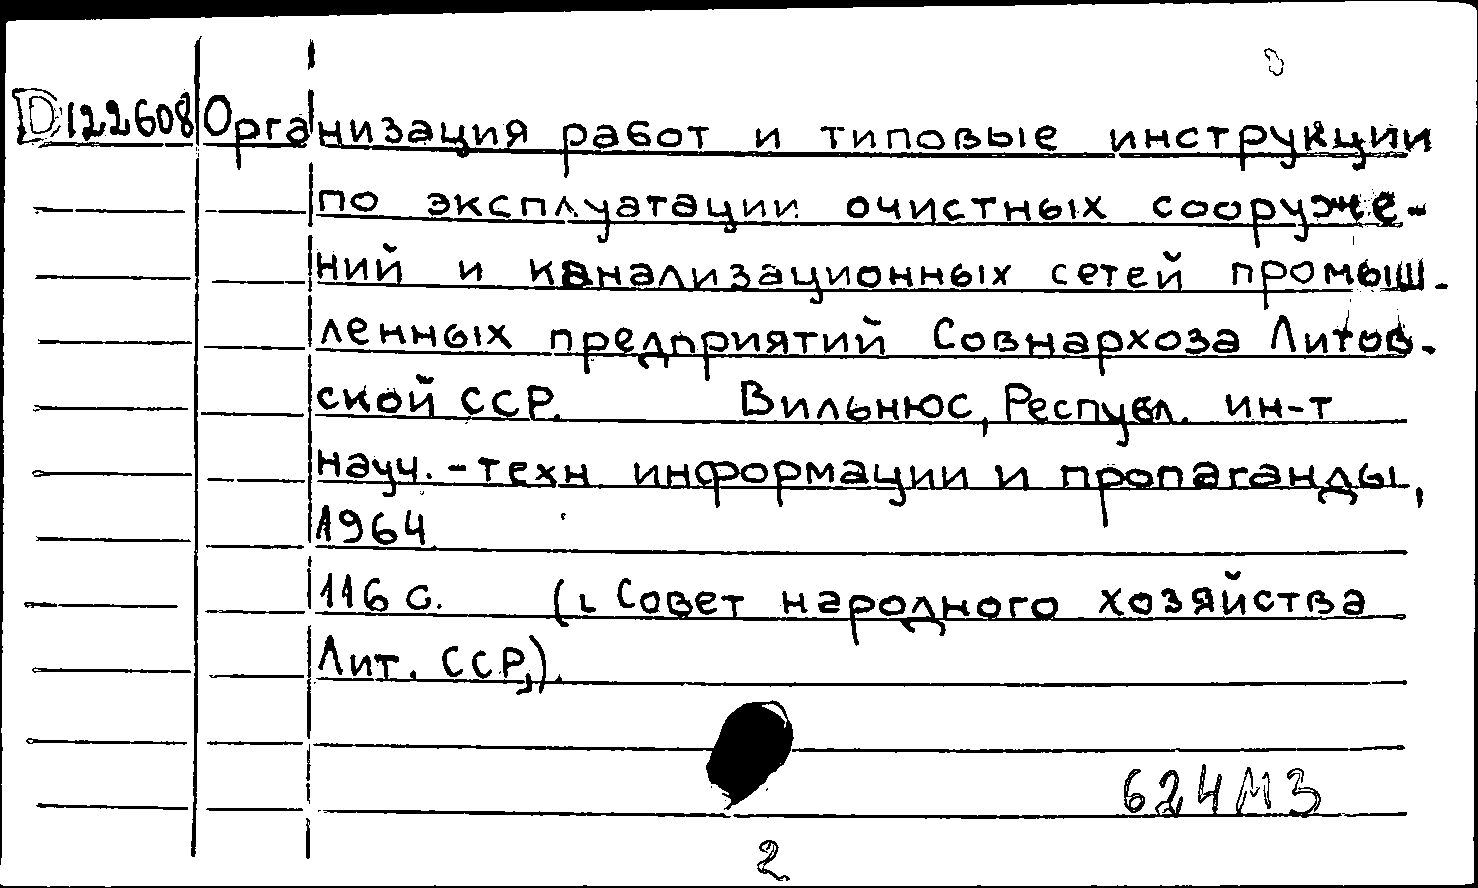 D122608 Организация работ и типовые инструкции
по эксплуатации очистных сооруже-
ний и канализационных сетей промыш-
ленных предприятий Совнархоза Литов-
ской ССР. Вильнюс, Республ. ин-т
науч.-техн информации и пропаганды,
1964.
116 с. (L Совет народного хозяйства
Лит. ССР,).
624М3
2